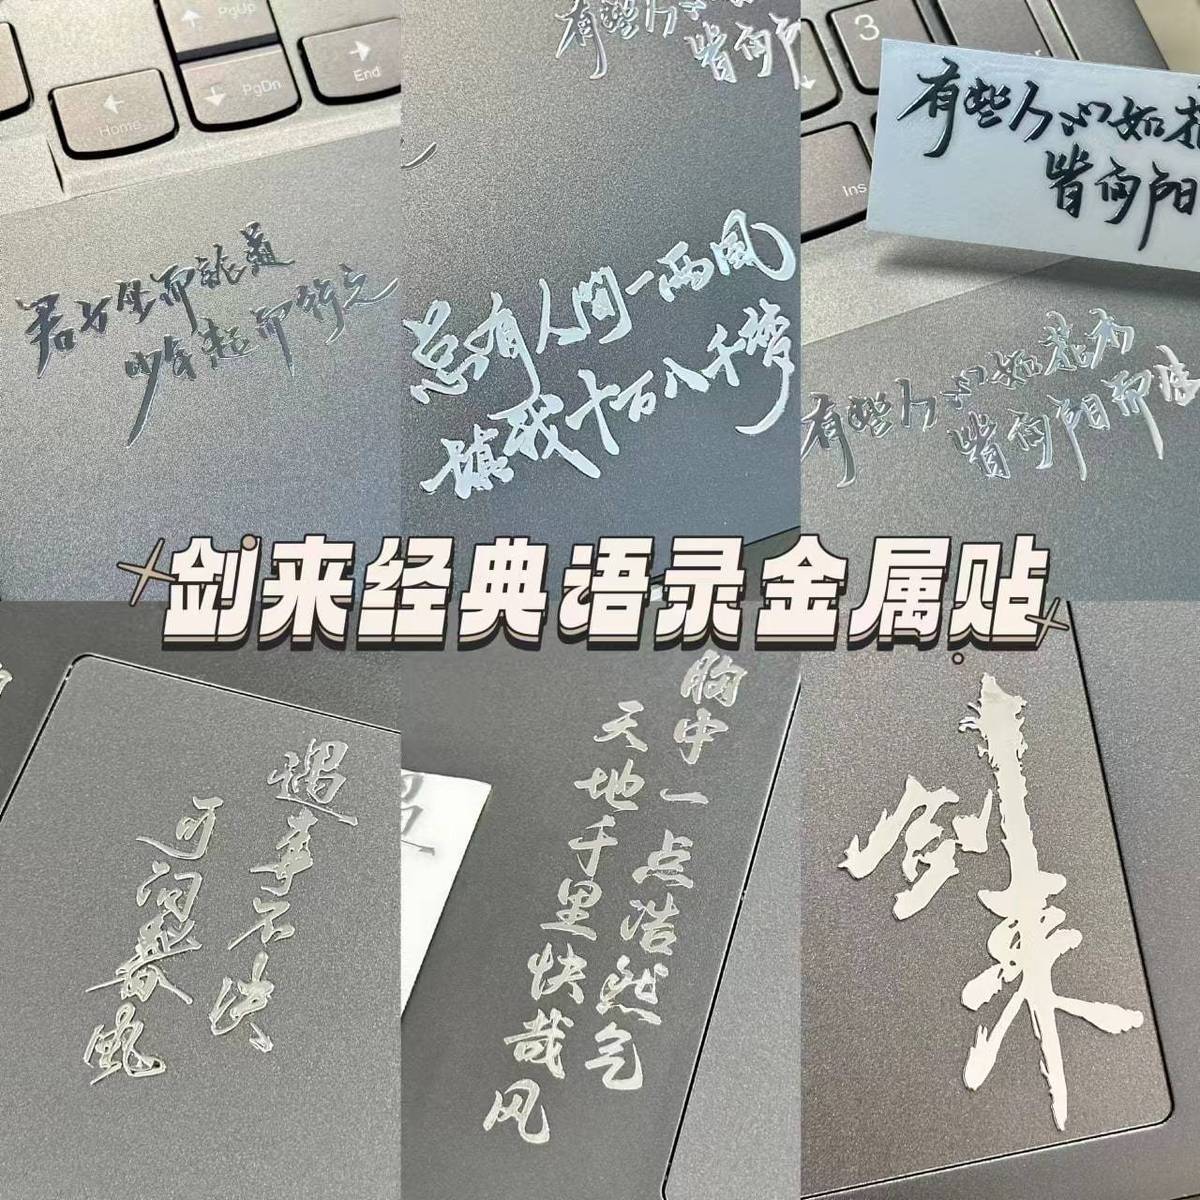 PgUp
Home
PgDn
End
君子坐而論道
少年起而行之
有些人
皆向阳
总有人间一两風
填我十万八千梦
3
Ins
有些人心如花
皆向阳
有些人心如花木
皆向阳而生
剑来经典语录金属贴
遇事不决
可问春風
胸中一点浩然气
天地千里快哉风
剑来